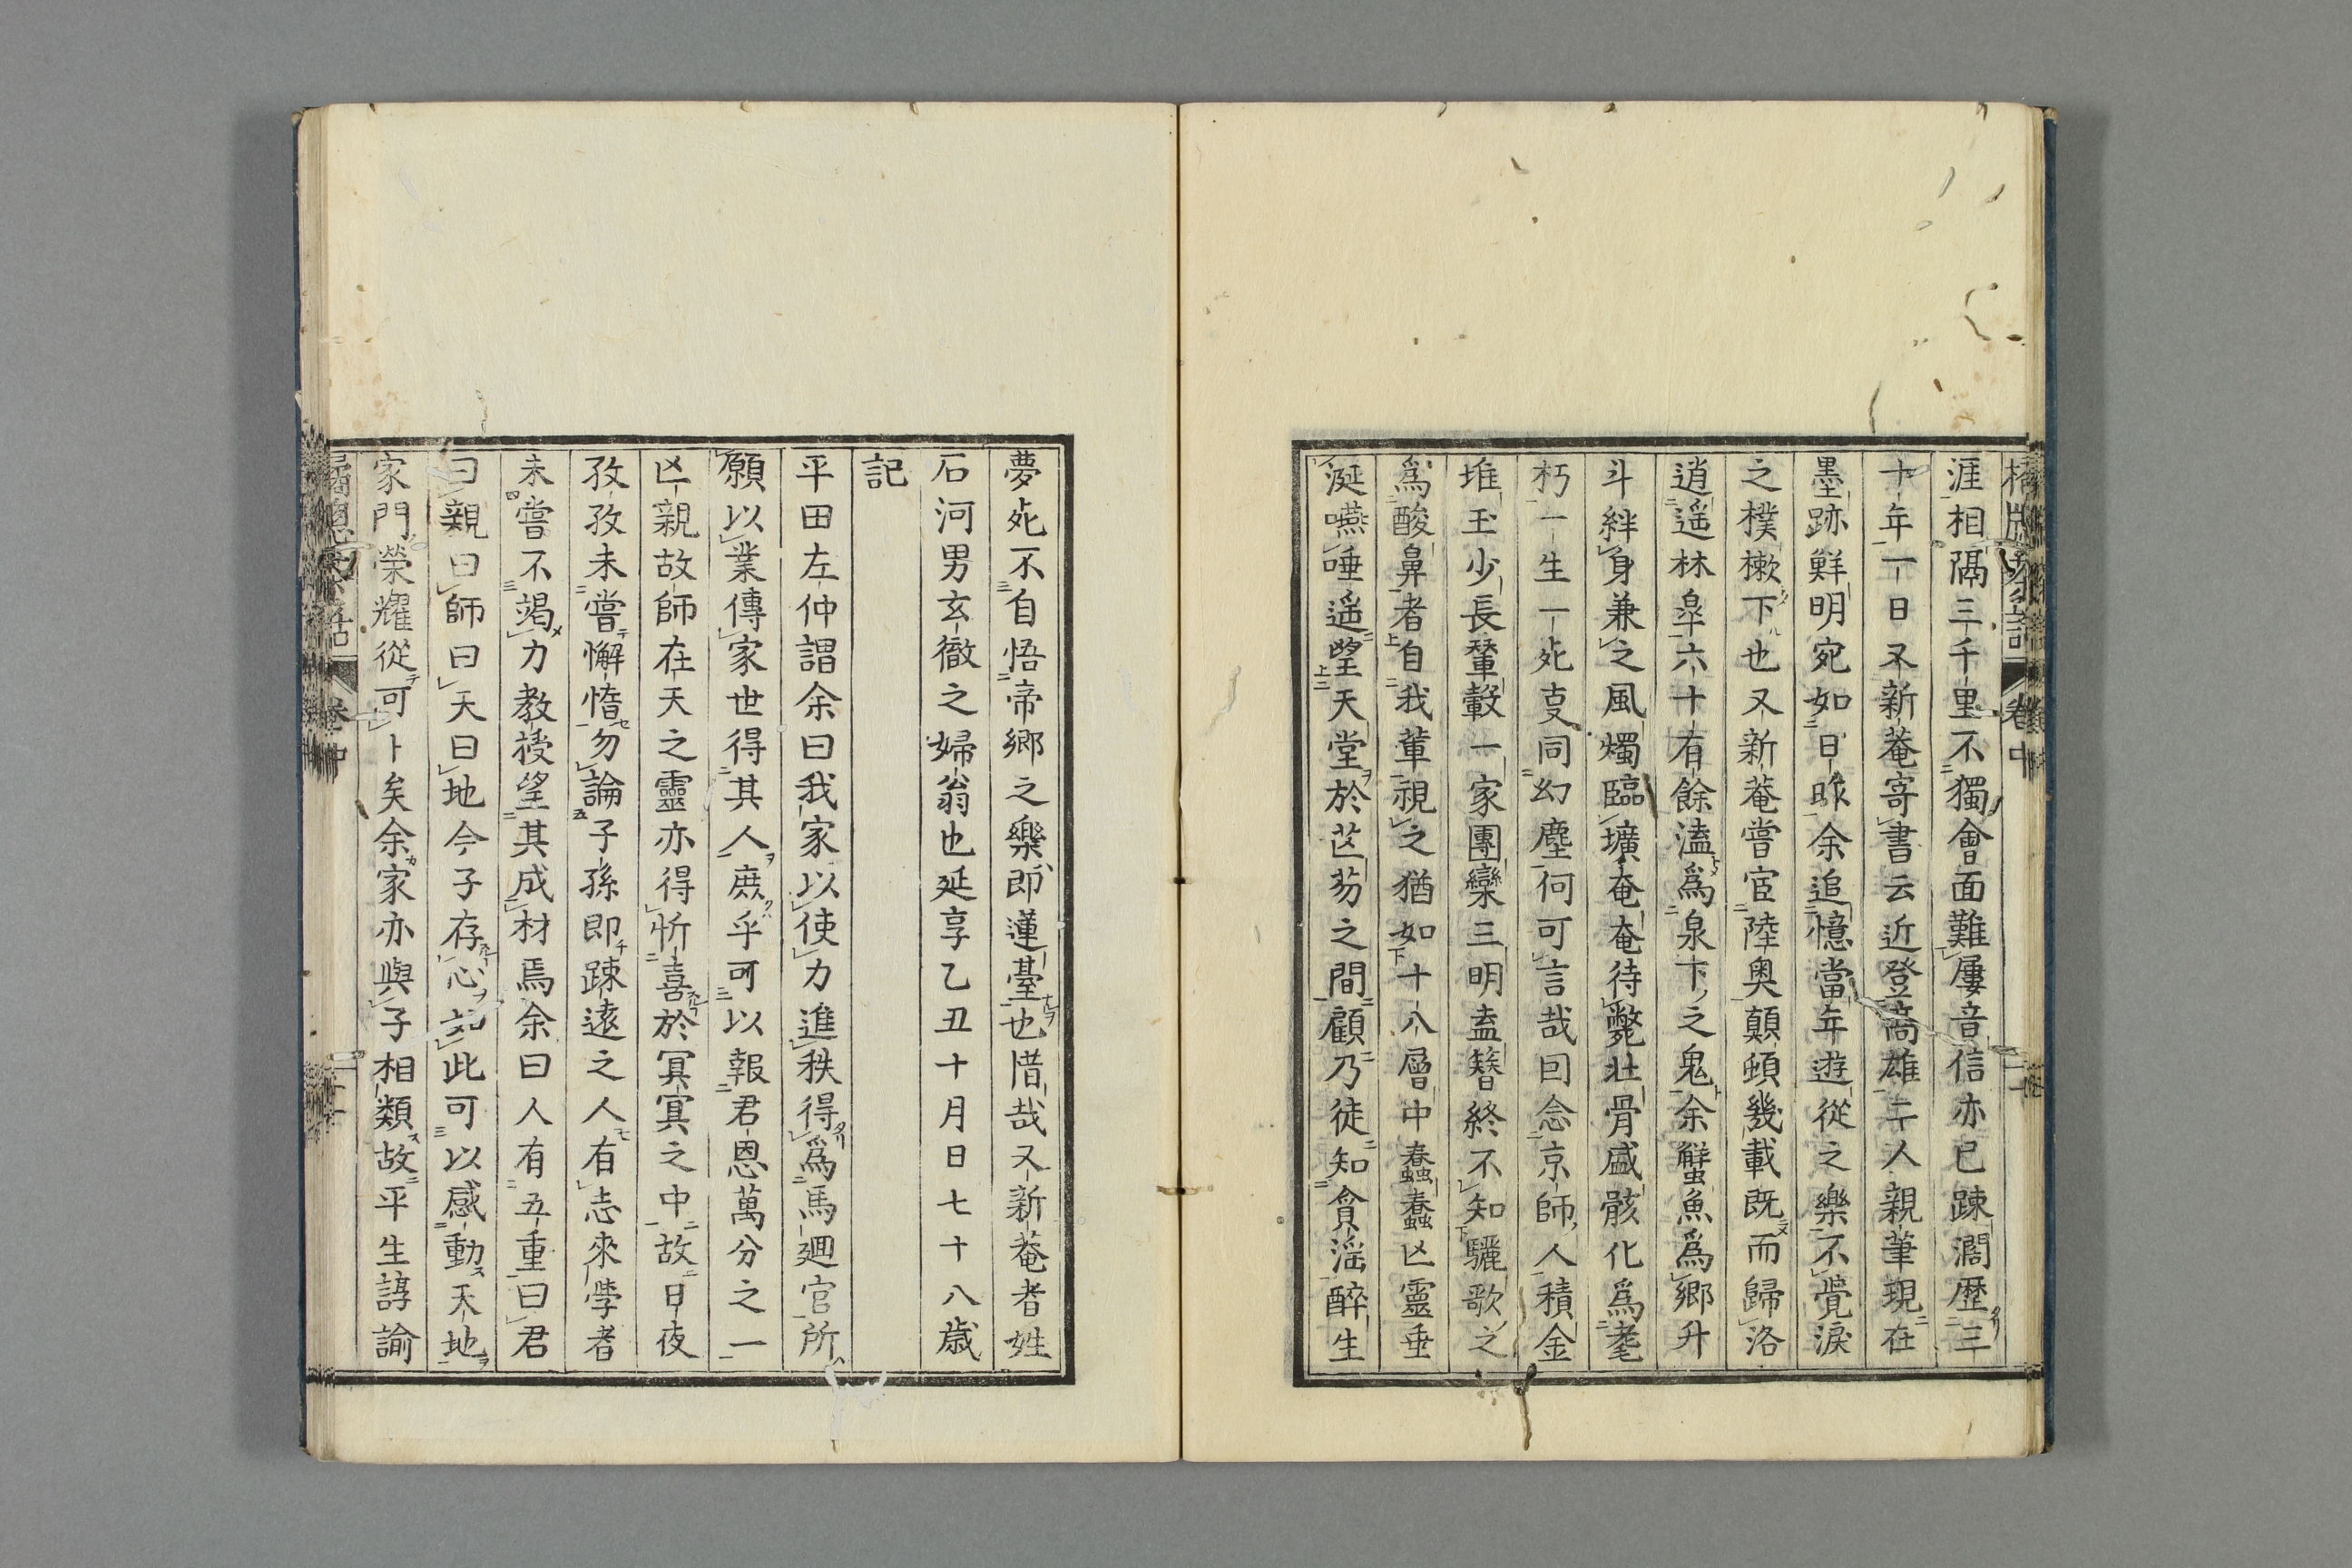 涯相隔三千里不獨會面難屢音信亦已踈濶歴三
十年一日又新菴寄書云近登高雄二人親筆現在
墨跡鮮明宛如日昨余追憶當年遊從之樂不覺淚
之樸樕下也又新菴嘗宦陸奥顛頓幾載既而歸洛
逍遥林皐六十有餘溘爲泉下之鬼余蟹魚爲鄉升
斗絆身兼之風燭臨壙奄奄待斃壮骨盛骸化爲耄
朽一生一死㕝同幻塵何可言哉回念京師人積金
堆玉少長輦轂一家團欒三明盍簪終不知驪歌之
爲酸鼻者自我輩視之猶如十八層中蠢蠢凶靈垂
涎嚥唾遥望天堂於芒芴之間顧乃徒知貪淫醉生
夢死不自悟帝鄉之樂即蓮臺也惜哉又新菴者姓
石河男玄徹之婦翁也延享乙丑十月日七十八歳
記
平田左仲謂余曰我家以使力進秩得爲馬廻官所
願以業傳家世得其人庶乎可以報君恩萬分之一
凶親故師在天之靈亦得忻喜於冥冥之中故日夜
孜孜未嘗懈惰勿論子孫即踈遠之人有志來學者
未嘗不竭力教授望其成材焉余曰人有五重曰君
曰親曰師曰天曰地今子存心如此可以感動天地
家門榮耀從可卜矣余家亦與子相類故平生諄諭